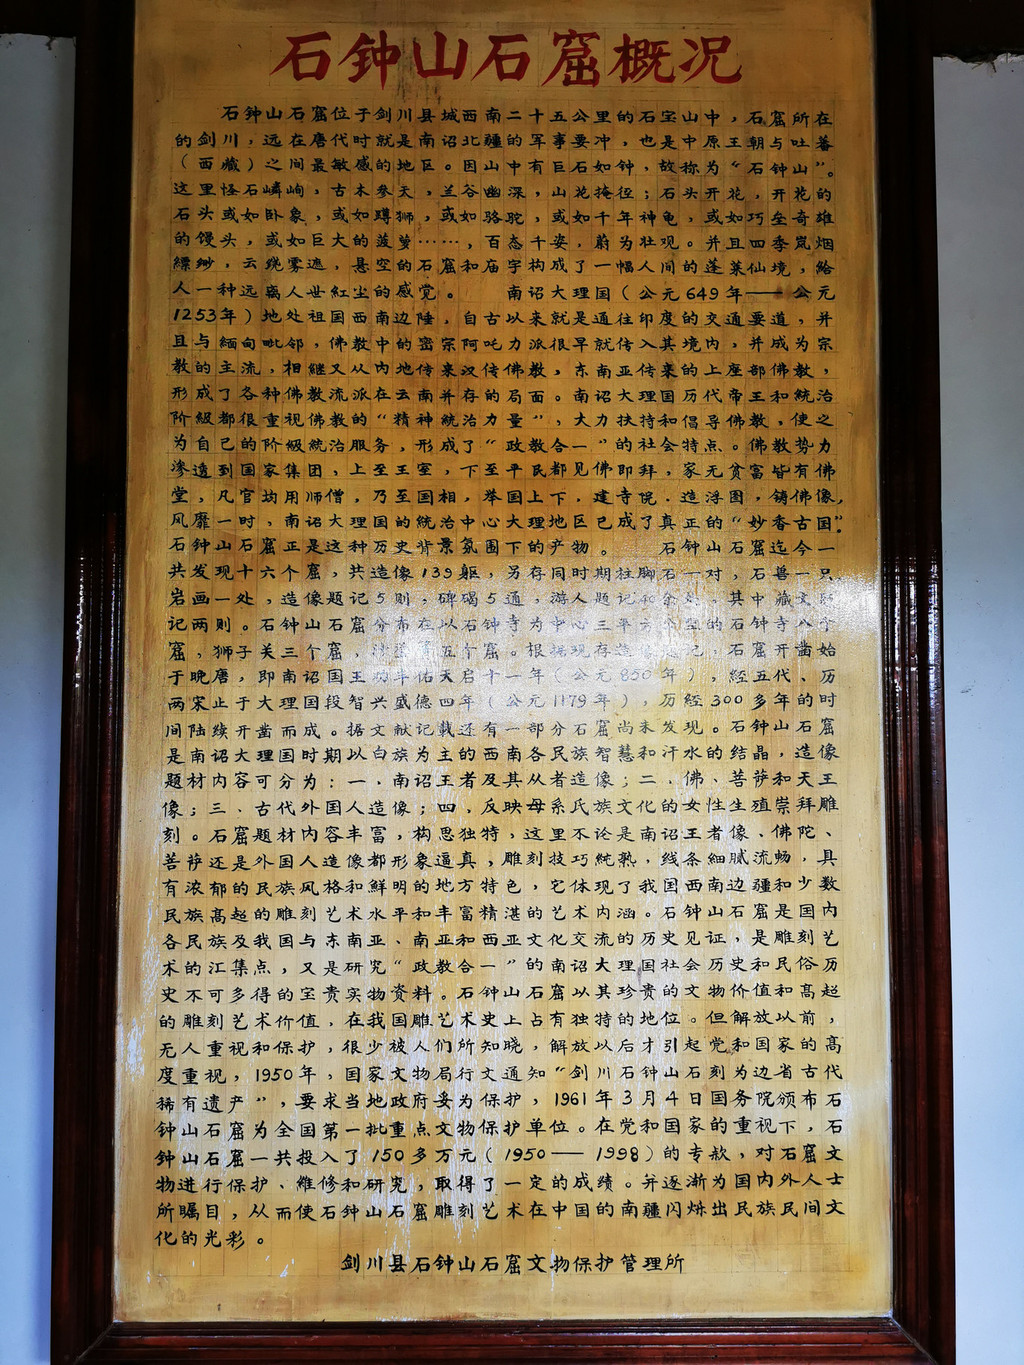 石钟山石窟概况
石钟山石窟位于剑川县城西南二十五公里的石宝山中，石窟所在
的剑川，远在唐代时就是南诏北疆的军事要冲，也是中原王朝与吐蕃
（西藏）之间最敏感的地区。因山中有巨石如钟，故称为“石钟山”。
这里怪石嶙峋，古木参天，兰谷幽深，山花掩径；石头开花，开花的
石头或如卧象，或如蹲狮，或如骆驼，或如千年神龟，或如巧垒奇雄
的馒头，或如巨大的菠萝……，百态千姿，蔚为壮观。并且四季岚烟
缥缈，云绕雾遮，悬空的石窟和庙宇构成了一幅人间的蓬莱仙境，给
人一种远离人世红尘的感觉。 南诏大理国（公元649年——公元
1253年）地处祖国西南边陲，自古以来就是通往印度的交通要道，并
且与缅甸毗邻，佛教中的密宗阿吒力派很早就传入其境内，并成为宗
教的主流，相继又从内地传来汉传佛教，东南亚传来的上座部佛教，
形成了各种佛教流派在云南并存的局面。南诏大理国历代帝王和统治
阶级都很重视佛教的“精神统治力量”，大力扶持和倡导佛教，使之
为自己的阶级统治服务，形成了“政教合一”的社会特点。佛教势力
渗透到国家集团，上至王室，下至平民都见佛即拜，家无贫富皆有佛
堂，凡官均用师僧，乃至国相，举国上下，建寺院．造浮图，铸佛像，
风靡一时，南诏大理国的统治中心大理地区已成了真正的“妙香古国”。
石钟山石窟正是这种历史背景氛围下的产物。 石钟山石窟迄今一
共发现十六个窟，共造像139躯，另存同时期柱脚石一对，石兽一只
岩画一处，造像题记5则，碑碣5通，游人题记40余处，其中藏文题
记两则。石钟山石窟分布在以石钟寺为中心三平方公里的石钟寺八个
窟，狮子关三个窟，沙登箐五个窟。根据现存造像题记，石窟开凿始
于晚唐，即南诏国王劝丰佑天启十一年（公元850年），经五代、历
两宋止于大理国段智兴盛德四年（公元1179年），历经300多年的时
间陆续开凿而成。据文献记载还有一部分石窟尚未发现。石钟山石窟
是南诏大理国时期以白族为主的西南各民族智慧和汗水的结晶，造像
题材内容可分为：一．南诏王者及其从者造像；二．佛、菩萨和天王
像；三、古代外国人造像；四，反映母系氏族文化的女性生殖崇拜雕
刻。石窟题材内容丰富，构思独特，这里不论是南诏王者像、佛陀、
菩萨还是外国人造像都形象逼真，雕刻技巧纯熟，线条细腻流畅，具
有浓郁的民族风格和鲜明的地方特色，它体现了我国西南边疆和少数
民族高超的雕刻艺术水平和丰富精湛的艺术内涵。石钟山石窟是国内
各民族及我国与东南亚、南亚和西亚文化交流的历史见证，是雕刻艺
术的汇集点，又是研究“政教合一”的南诏大理国社会历史和民俗历
史不可多得的宝贵实物资料。石钟山石窟以其珍贵的文物价值和高超
的雕刻艺术价值，在我国雕艺术史上占有独特的地位。但解放以前，
无人重视和保护，很少被人们所知晓，解放以后才引起党和国家的高
度重视，1950年，国家文物局行文通知“剑川石钟山石刻为边省古代
稀有遗产”，要求当地政府妥为保护，1961年3月4日国务院颁布石
钟山石窟为全国第一批重点文物保护单位。在党和国家的重视下，石
钟山石窟一共投入了150多万元（1950——1998）的专款，对石窟文
物进行保护、维修和研究，取得了一定的成绩。并逐渐为国内外人士
所瞩目，从而使石钟山石窟雕刻艺术在中国的南疆闪烁出民族民间文
化的光彩。
剑川县石钟山石窟文物保护管理所